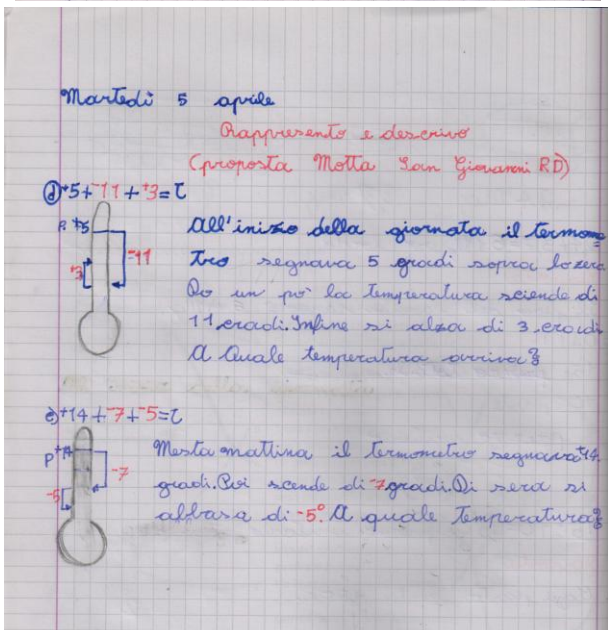 Martedì 5 aprile
Rappresento e descrivo
(proposta Motta San Giovanni RD)
d) +5+-11++3=τ
P. +5
-11
+3
All'inizio della giornata il termome
tro segnava 5 gradi sopra lo zero
Do un po' la temperatura sciende di
11 eradi. Infine si alza di 3 eradi.
A Quale temperatura arriva?
e) +14+-7+-5=τ
P +14
-7
-5
mattina il termometro segnava +14
gradi. Poi scende di -7 gradi. Di sera si
abbasa di -5°. A quale temperatura?